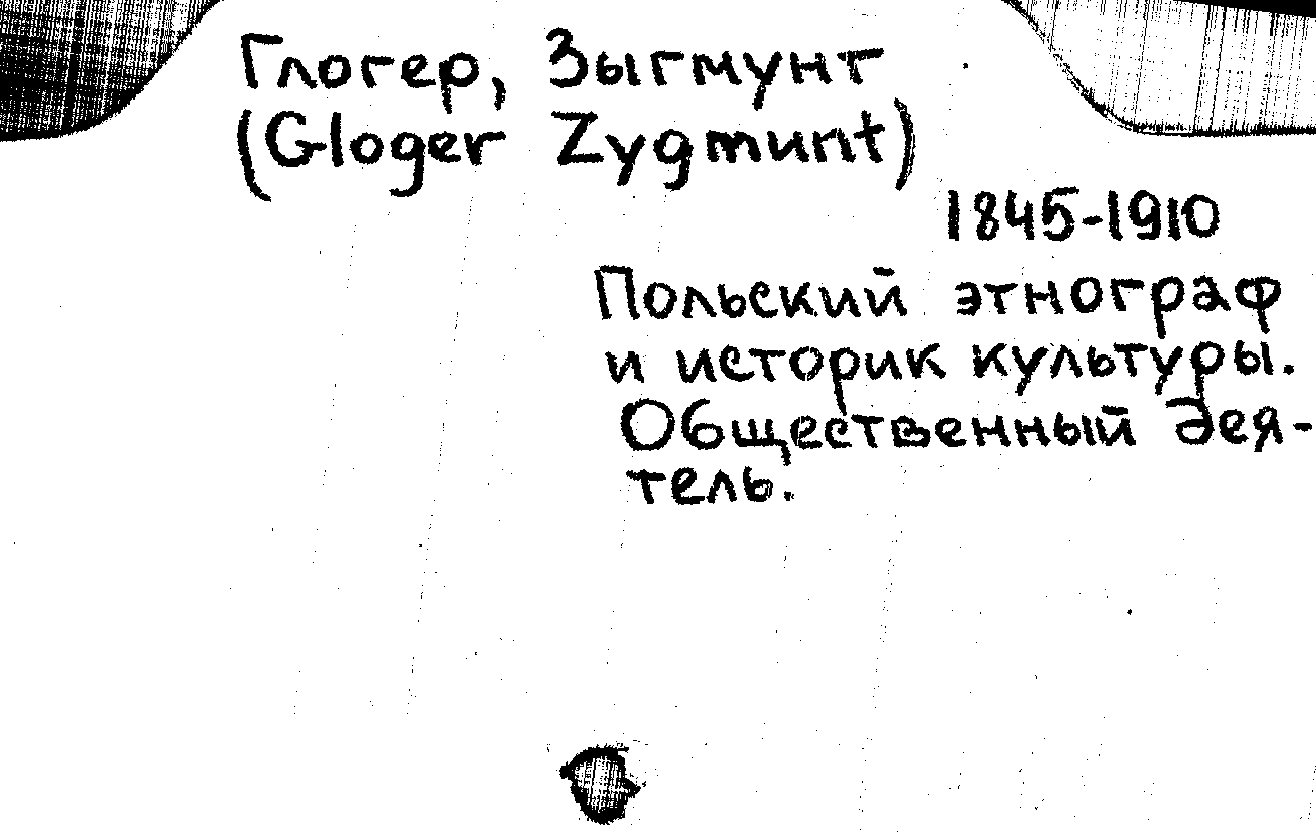 Глогер, Зыгмунт
(Gloger Zygmunt)
1845-1910
Польский этнограф
и историк культуры.
Общественный дея-
тель.